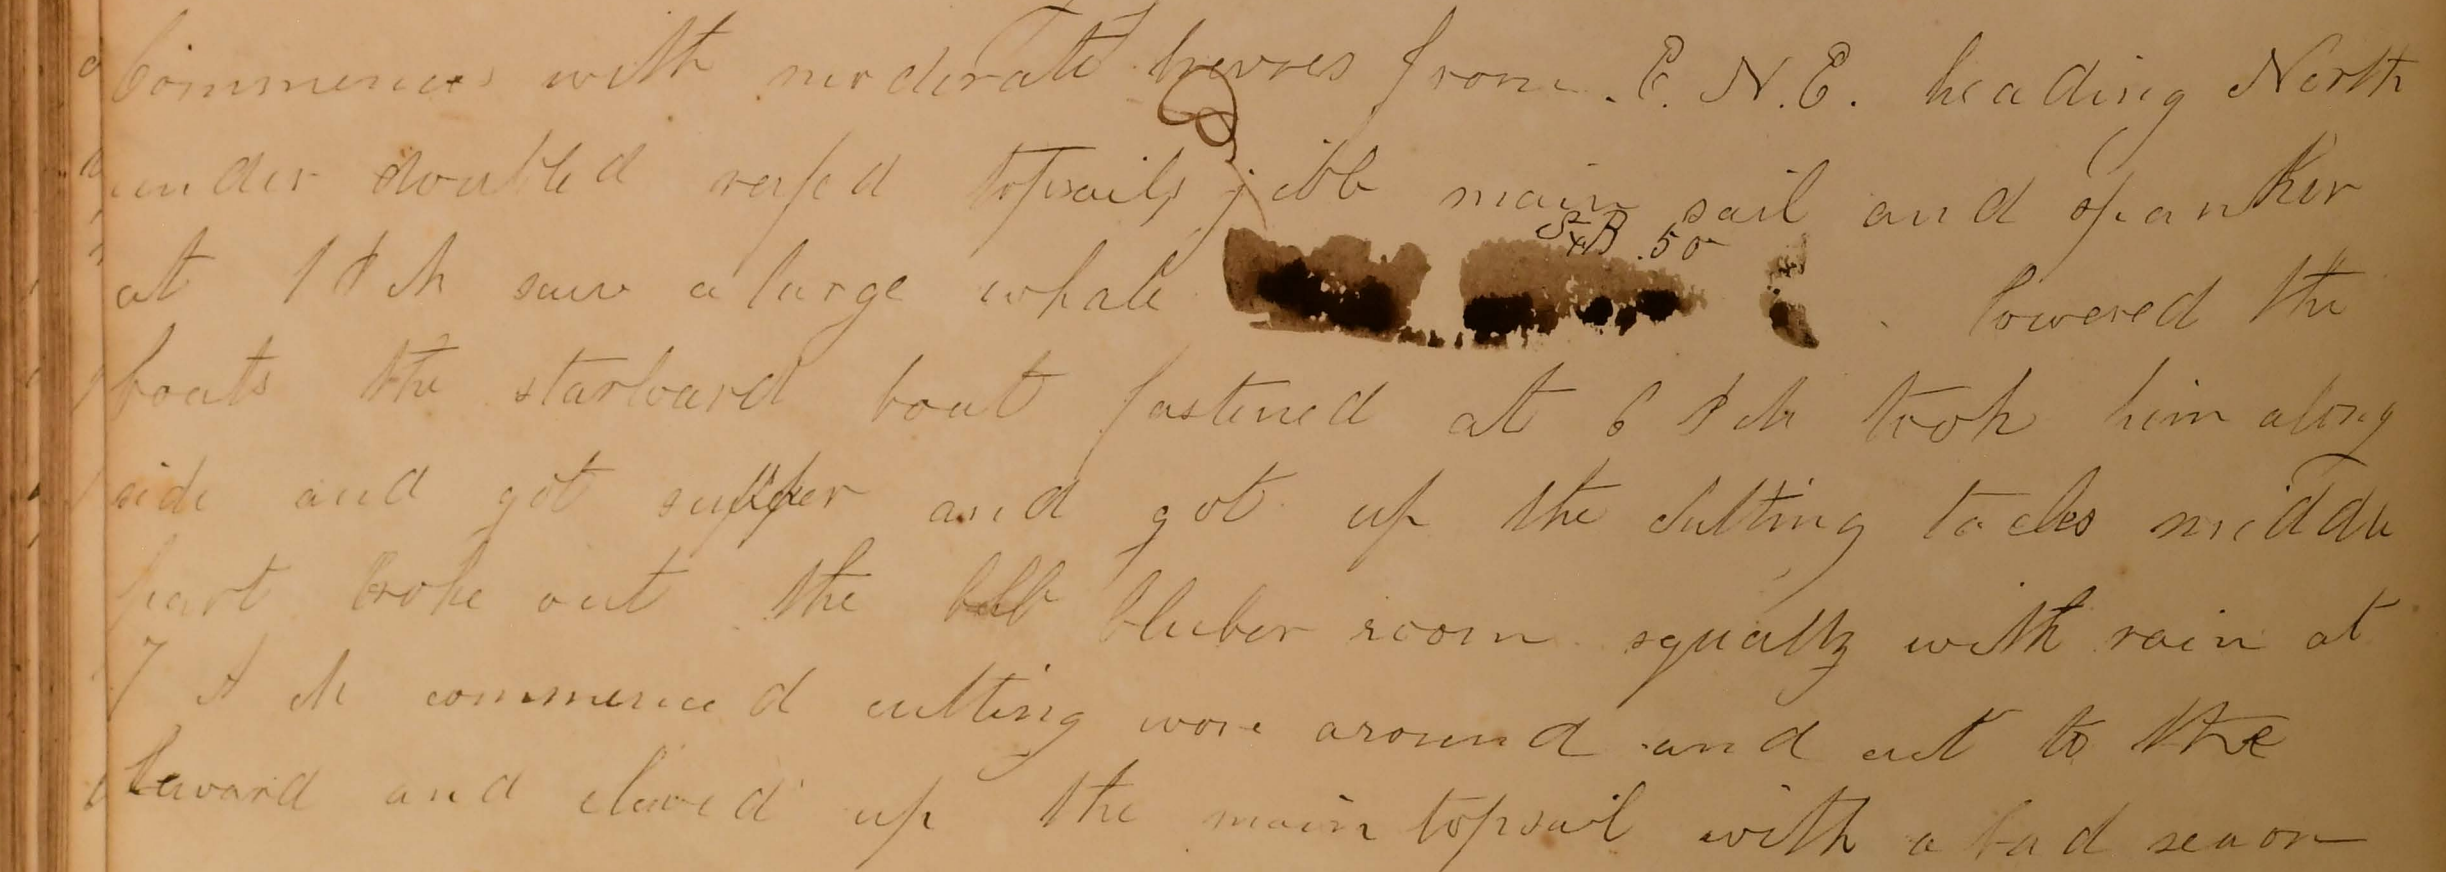 Commences with moderate breeses from E. N. E. heading North
under doubled reefed topsails jibb main sail and spanker
at 1 P M saw a large whale S B 50 lowered the
boats the starboard boat fastened at 6 P M took him along
side and got supper and got up the cutting tacles middle
part broke out the bluber room squally with rain at
7 A M commenced cutting wore around and cut to the
leward and clewed up the main topsail with a bad sea on